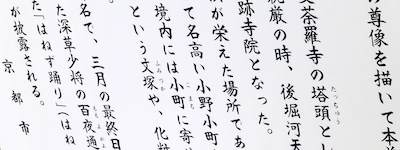 の尊像を描いて本
曼荼羅寺の塔頭とし
たっちゅう
統厳の時、後堀河天
が栄えた場所であ
跡寺院となった。
て名高い小野小町
境内には小町に寄せ
という文塚や、化粧
ふみづか
名で、三月の最終日
た深草少将の百夜通
ももよがよ
た「はねず踊り」（はね
が披露される。
京都市